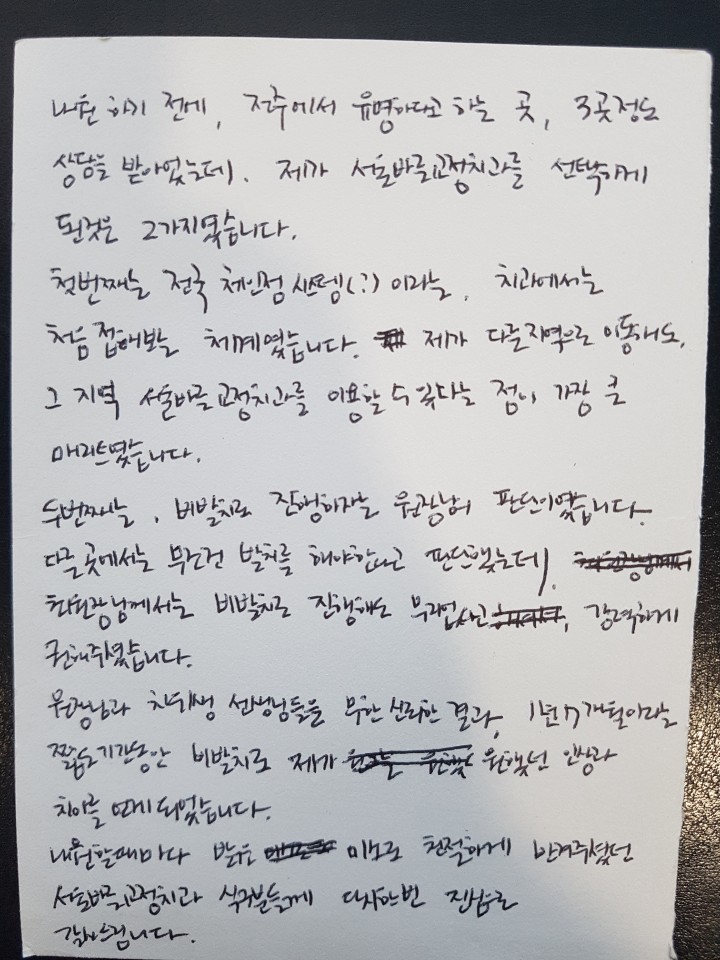 내원 하기 전에, 전주에서 유명하다고 하는 곳, 3곳정도
상담을 받아었는데. 제가 서울바른교정치과를 선택하게
된것은 2가지였습니다.
첫번째는 전국 체인점 시스템(?) 이라는, 치과에서는
처음 접해보는 체계였습니다. 제가 다른지역으로 이동해도,
그 지역 서울바른교정치과를 이용할 수 있다는 점이 가장 큰
매리트였습니다.
두번째는, 비발치로 진행하자는 원장님의 판단이였습니다.
다른 곳에서는 무조건 발치를 해야한다고 판단했는데,
원장님께서는 비발치로 진행해도 무리없다고, 강력하게
권해주셨습니다.
원장님과 치위생 선생님들을 무한 신뢰한 결과, 1년 7개월이라는
짧은 기간동안 비발치로 제가 원했던 인상과
치아를 얻게 되었습니다.
내원할때마다 밝은 미소로 친절하게 반겨주셨던
서울바른교정치과 식구분들께 다시한번 진심으로
감사드립니다.